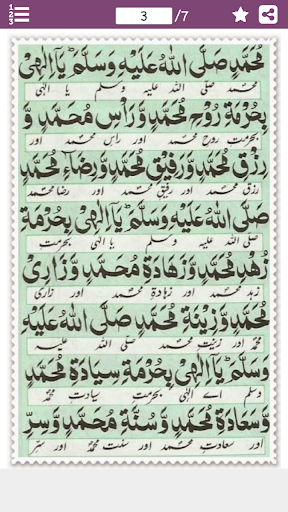 3 /7
مُحَمَّدٍ صَلَّى اللهُ عَلَيْهِ وَسَلَّمَ يَآ اِلٰهِىْ
محمد صلی اللہ علیہ وسلم یا الٰہی
بِحُرْمَةِ رُوْحِ مُحَمَّدٍ وَّرَاْسِ مُحَمَّدٍ وَّ
بحرمت روح محمد اور راس محمد اور
رِزْقِ مُحَمَّدٍ وَّرَفِيْقِ مُحَمَّدٍ وَّرِضَآءِ مُحَمَّدٍ
رزق محمد اور رفیق محمد اور رضا محمد
صَلَّى اللهُ عَلَيْهِ وَسَلَّمَ يَآ اِلٰهِىْ بِحُرْمَةِ
صلی اللہ علیہ وسلم یا الٰہی بحرمت
زُهْدِ مُحَمَّدٍ وَّزَهَادَةِ مُحَمَّدٍ وَّزَارِىْ
زہد محمد اور زہادۃ محمد اور زاری
مُحَمَّدٍ وَّزِيْنَةِ مُحَمَّدٍ صَلَّى اللهُ عَلَيْهِ
محمد اور زینت محمد صلی اللہ علیہ
وَسَلَّمَ يَآ اِلٰهِىْ بِحُرْمَةِ سِيَادَةِ مُحَمَّدٍ
وسلم اے الٰہی بحرمت سیادت محمد
وَّسَعَادَةِ مُحَمَّدٍ وَّسُنَّةِ مُحَمَّدٍ وَّسِرِّ
اور سعادت محمد اور سنت محمد اور سرّ